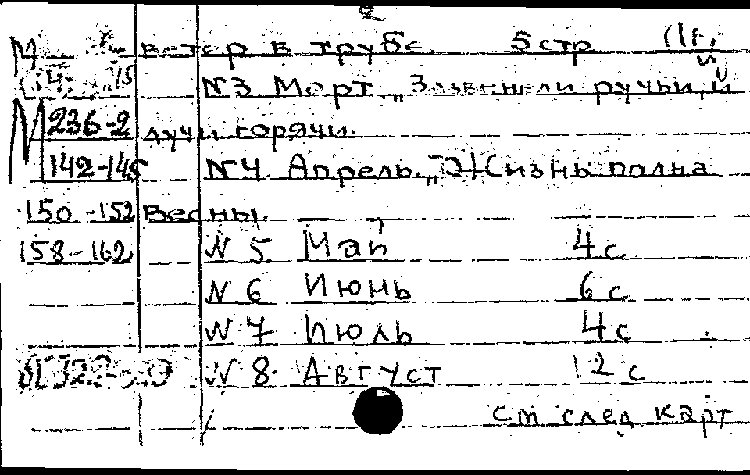 2
ветер в трубе 5 стр
N3 Март „Зазвенели ручьи, и
236-2 лучи горячи.
142-145 N4 Апрель. „Жизнь полна
150-152 Весны.
158-162 N 5 Май 4 с
N 6 Июнь 6 с
N 7 Июль 4 с
N 8. Август 12 с
см след карт